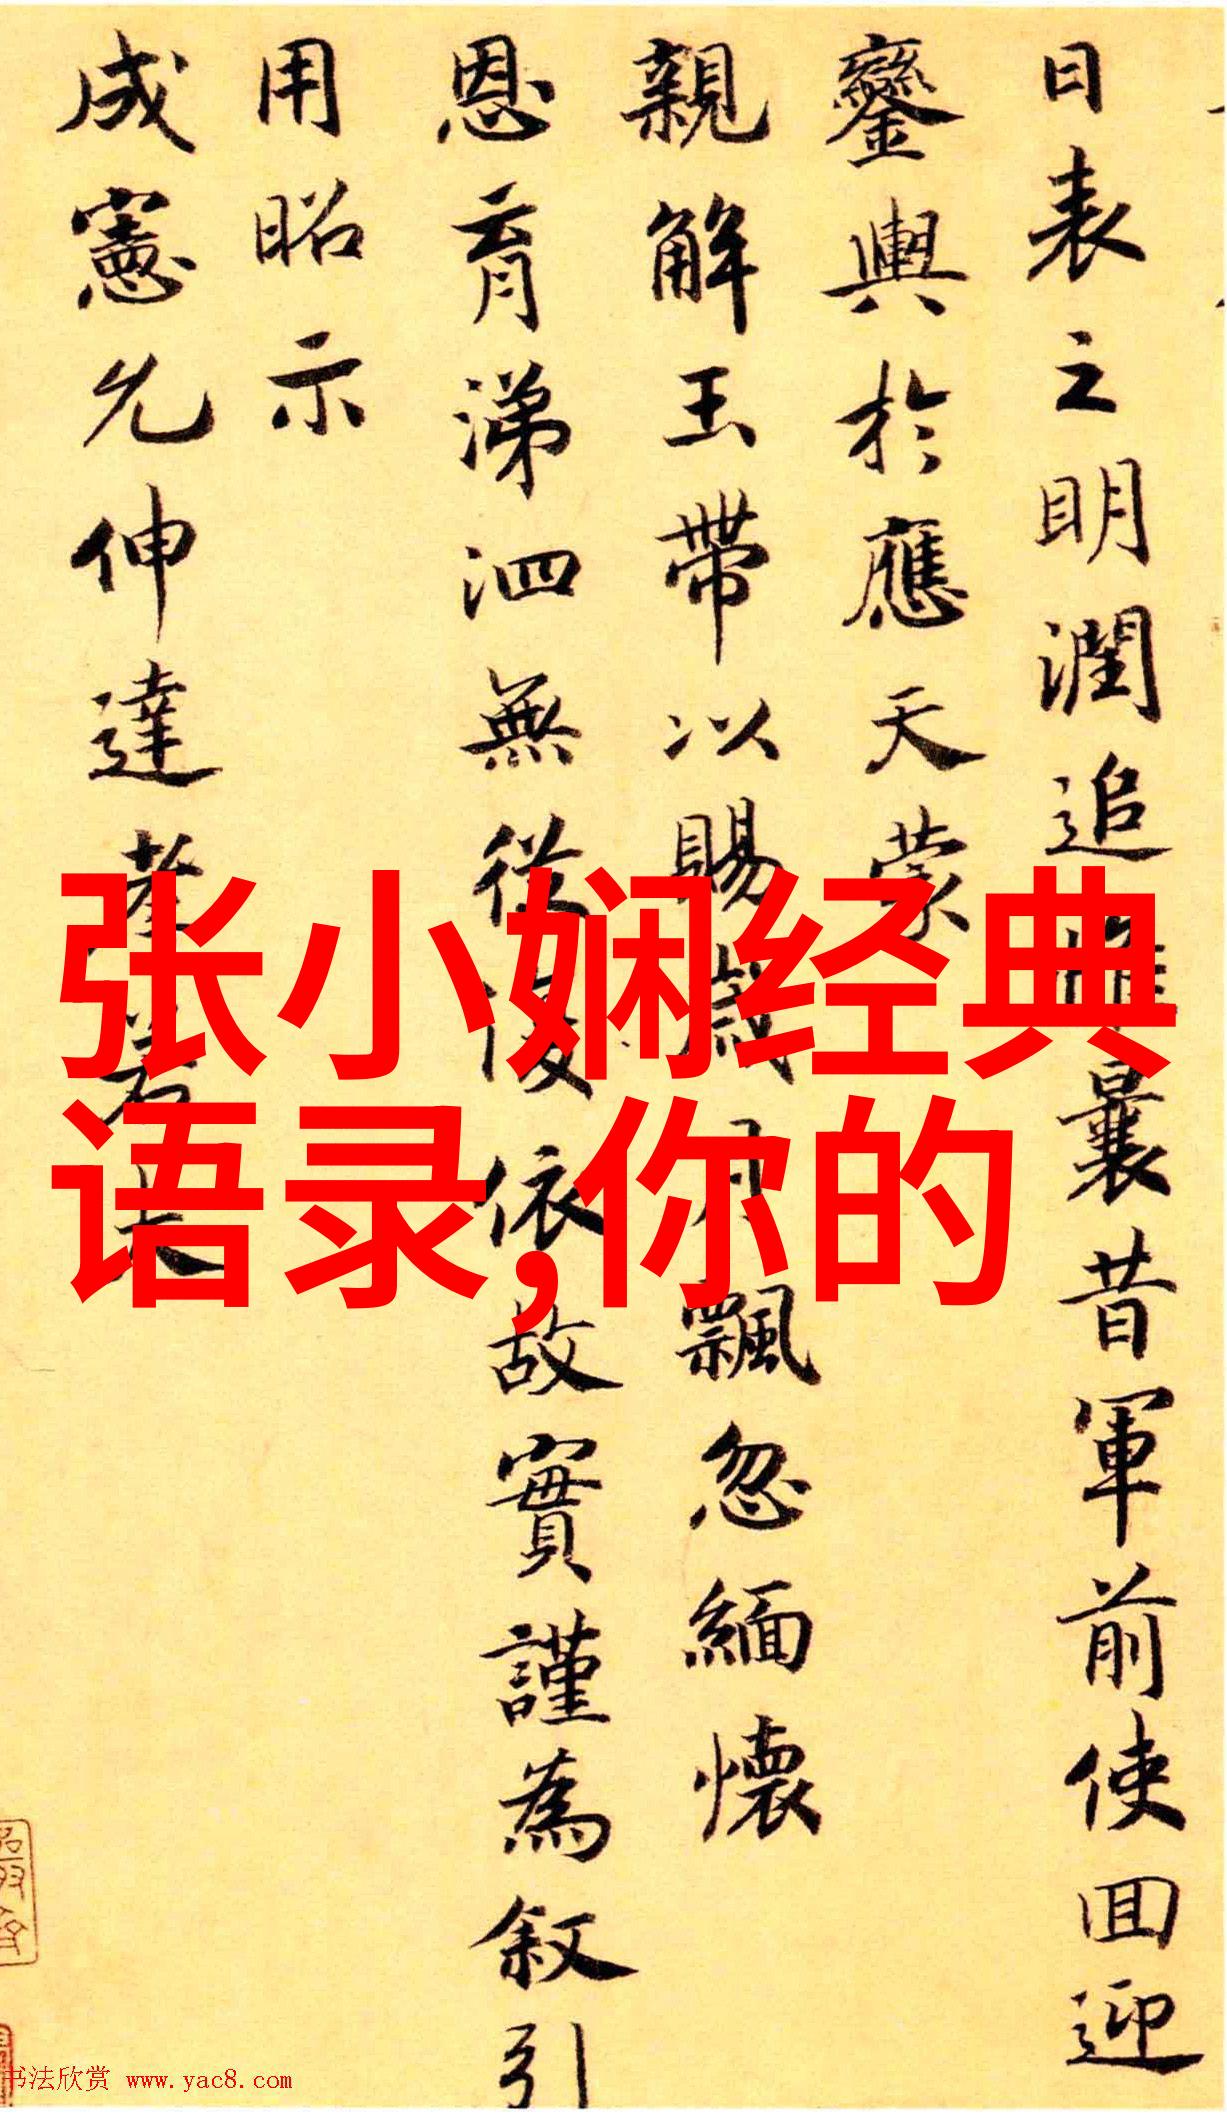 日表之明潤追惟曩昔軍前使回迎
鑾輿於應天蒙
親解玉帶以賜歲月飄忽緬懷
恩育涕泗無從復依故實謹為叙引
用昭示
成憲允伸達孝若夫
张小娴经典
语录,你的
书法欣赏 www.yac8.com